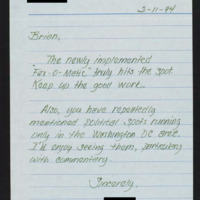 3-11-94
Brian,
The newly implemented
"Fax-O-Matic" truly hits the spot.
Keep up the good work.
Also, you have repeatedly
mentioned political spots running
only in the Washington DC area.
I'd enjoy seeing them, particularly
with commentary.
Sincerely,